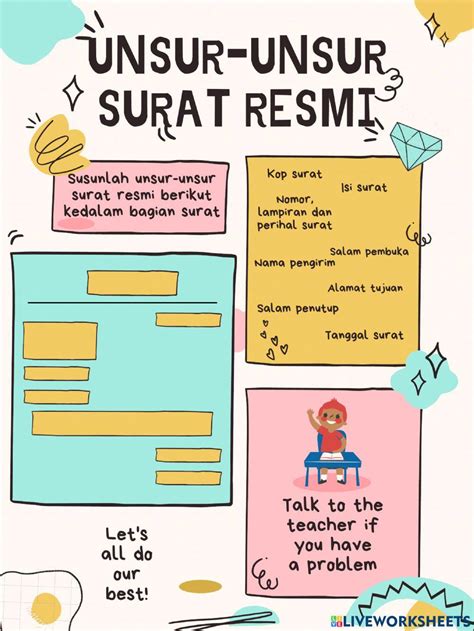 UNSUR-UNSUR
SURAT RESMI
Susunlah unsur-unsur
surat resmi berikut
kedalam bagian surat
Kop surat
Isi surat
Nomor,
lampiran dan
perihal surat
Salam pembuka
Nama pengirim
Alamat tujuan
Salam penutup
Tanggal surat
Talk to the
teacher if
you have
a problem
Let's
all do
our
best!
LIVEWORKSHEETS